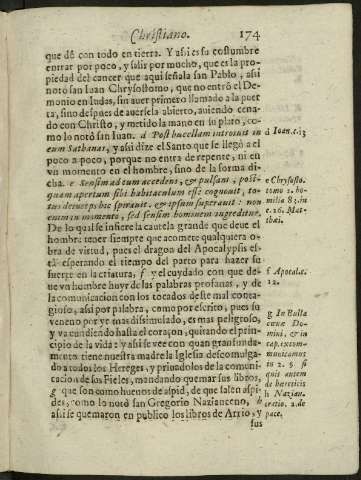 Christiano. 174
que dè con todo en tierra. Y assi es su costumbre
entrar por poco, y salir por mucho, que es la pro-
piedad del cancer que aqui señala san Pablo, assi
notò san Iuan Chrysostomo, que no entrò el De-
monio en Iudas, sin auer primero llamado a la puer
ta, sino despues de auersela abierto, auiendo cena-
do con Christo, y metido la mano en su plato, co-
mo lo notò san Iuan. d Post buccellam introiuit in
eum Sathanas, y assi dize el Santo que se llegò a el
poco a poco, porque no entra de repente, ni en
vn momento en el hombre, sino de la forma di-
cha. e Sensim ad eum accedens, & pulsans, post-
quam apertum sibi habitaculum esse cognouit, to-
tus
& ipsum superauit: non
enim in momento, sed sensim hominem aggreditur.
De lo qual se infiere la cautela grande que deue el
hombre tener siempre que acomete qualquiera o-
bra de virtud, pues el dragon del Apocalypsis es-
tà esperando el tiempo del parto para hazer su
fuerte en la criatura, f y el cuydado con que de-
ue vn hombre huyr de las palabras profanas, y de
la comunicacion con los tocados deste mal conta-
gioso, assi por palabra, como por escrito, pues su
veneno por yr tan dissimulado, es mas peligroso,
y va cundiendo hasta el coraçon, quitando el prin-
cipio de la vida: y assi se vee con quan gran funda-
mento tiene nuestra madre la Iglesia descomulga-
do a todos los Hereges, y priuadolos de la comuni-
cacion de sus Fieles, mandando quemar sus libros,
g que son como hueuos de aspid, de que salen aspi-
des, como lo notò san Gregorio Nazianceno, h
assi se quemaron en publico los libros de Arrio, y
sus
d Ioan. c. 13
e Chrysosto.
tomo 2. ho-
milia 82. in
c. 26. Mat-
thæi.
f Apocal. c.
12.
g In Bulla
cœnæ Do-
mini, & in
cap. excom-
municamus
in 2. § si
quis autem
de hæreticis
h Nazian.
oratio. 2. de
pace.